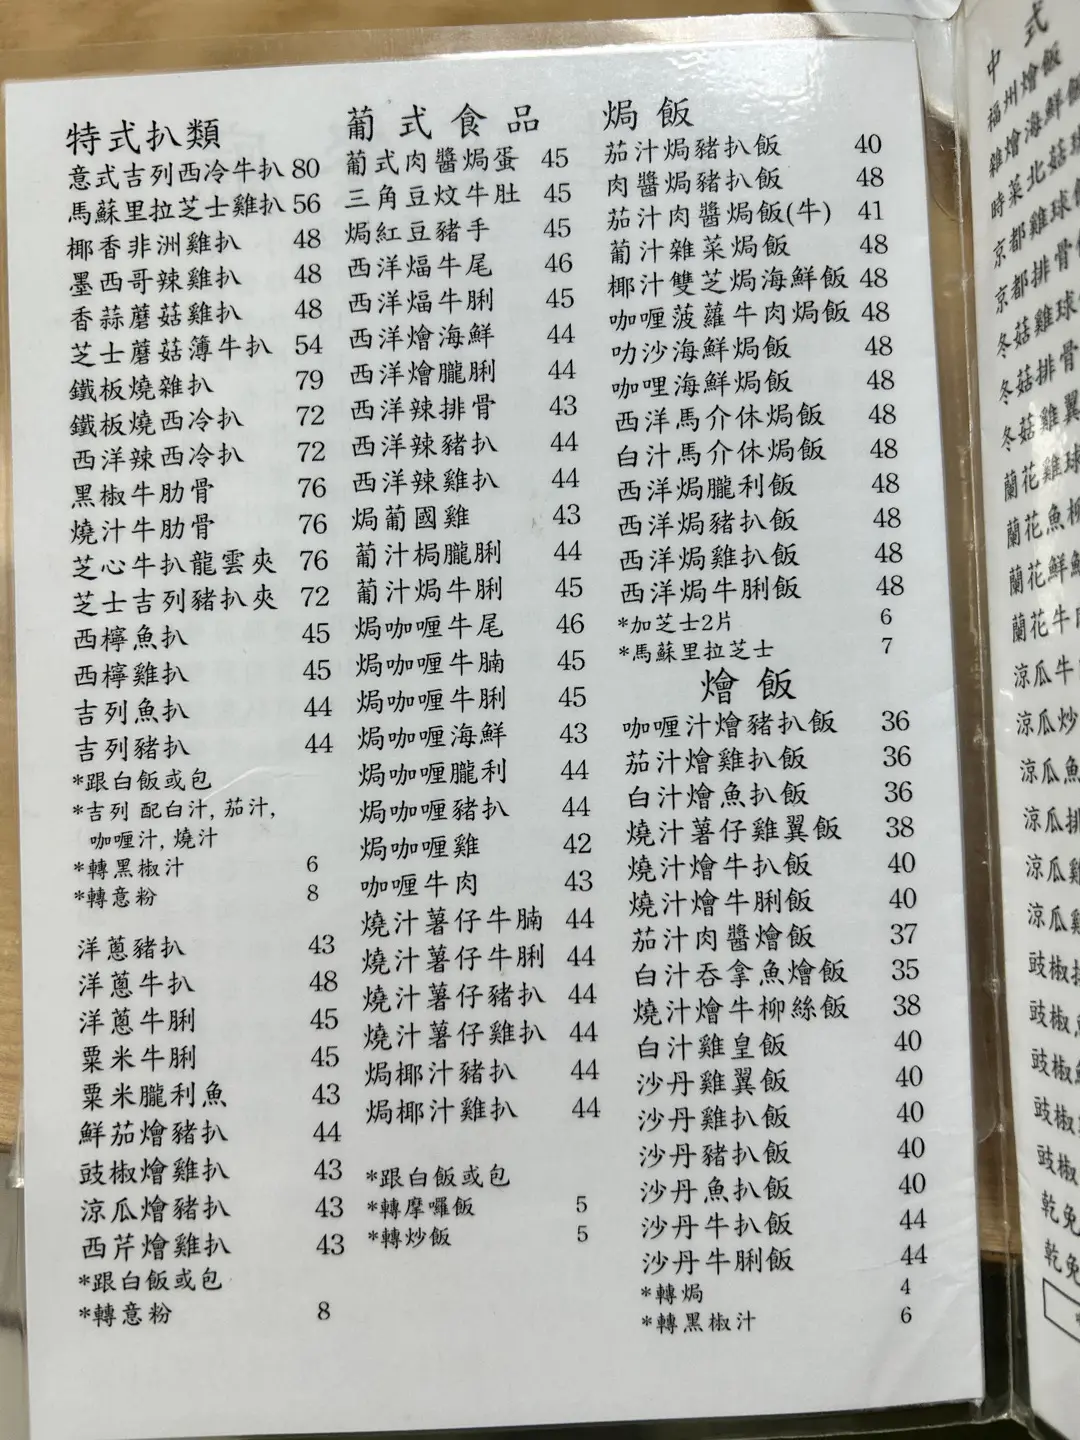 特式扒類
意式吉列西冷牛扒 80
馬蘇里拉芝士雞扒 56
椰香非洲雞扒 48
墨西哥辣雞扒 48
香蒜蘑菇雞扒 48
芝士蘑菇簿牛扒 54
鐵板燒雜扒 79
鐵板燒西冷扒 72
西洋辣西冷扒 72
黑椒牛肋骨 76
燒汁牛肋骨 76
芝心牛扒龍雲夾 76
芝士吉列豬扒夾 72
西檸魚扒 45
西檸雞扒 45
吉列魚扒 44
吉列豬扒 44
*跟白飯或包
*吉列 配白汁, 茄汁,
咖喱汁, 燒汁
*轉黑椒汁 6
*轉意粉 8
洋蔥豬扒 43
洋蔥牛扒 48
洋蔥牛脷 45
粟米牛脷 45
粟米朧利魚 43
鮮茄燴豬扒 44
豉椒燴雞扒 43
涼瓜燴豬扒 43
西芹燴雞扒 43
*跟白飯或包
*轉意粉 8
葡式食品
葡式肉醬焗蛋 45
三角豆炆牛肚 45
焗紅豆豬手 45
西洋煏牛尾 46
西洋煏牛脷 45
西洋燴海鮮 44
西洋燴朧脷 44
西洋辣排骨 43
西洋辣豬扒 44
西洋辣雞扒 44
焗葡國雞 43
葡汁梮朧脷 44
葡汁焗牛脷 45
焗咖喱牛尾 46
焗咖喱牛腩 45
焗咖喱牛脷 45
焗咖喱海鮮 43
焗咖喱朧利 44
焗咖喱豬扒 44
焗咖喱雞 42
咖喱牛肉 43
燒汁薯仔牛腩 44
燒汁薯仔牛脷 44
燒汁薯仔豬扒 44
燒汁薯仔雞扒 44
焗椰汁豬扒 44
焗椰汁雞扒 44
*跟白飯或包
*轉摩囉飯 5
*轉炒飯 5
焗飯
茄汁焗豬扒飯 40
肉醬焗豬扒飯 48
茄汁肉醬焗飯(牛) 41
葡汁雜菜焗飯 48
椰汁雙芝焗海鮮飯 48
咖喱菠蘿牛肉焗飯 48
叻沙海鮮焗飯 48
咖哩海鮮焗飯 48
西洋馬介休焗飯 48
白汁馬介休焗飯 48
西洋焗朧利飯 48
西洋焗豬扒飯 48
西洋焗雞扒飯 48
西洋焗牛脷飯 48
*加芝士2片 6
*馬蘇里拉芝士 7
燴飯
咖喱汁燴豬扒飯 36
茄汁燴雞扒飯 36
白汁燴魚扒飯 36
燒汁薯仔雞翼飯 38
燒汁燴牛扒飯 40
燒汁燴牛脷飯 40
茄汁肉醬燴飯 37
白汁吞拿魚燴飯 35
燒汁燴牛柳絲飯 38
白汁雞皇飯 40
沙丹雞翼飯 40
沙丹雞扒飯 40
沙丹豬扒飯 40
沙丹魚扒飯 40
沙丹牛扒飯 44
沙丹牛脷飯 44
*轉焗 4
*轉黑椒汁 6
中式
福州燴飯
雞燴海鮮飯
時菜北菇
京都雞球
京都排骨
冬菇雞球
冬菇排骨
冬菇雞翼
蘭花雞球
蘭花魚柳
蘭花鮮
蘭花牛
涼瓜牛
涼瓜炒
涼瓜魚
涼瓜排
涼瓜雞
涼瓜雞
豉椒排
豉椒
豉椒
豉椒
豉椒
乾免
乾免